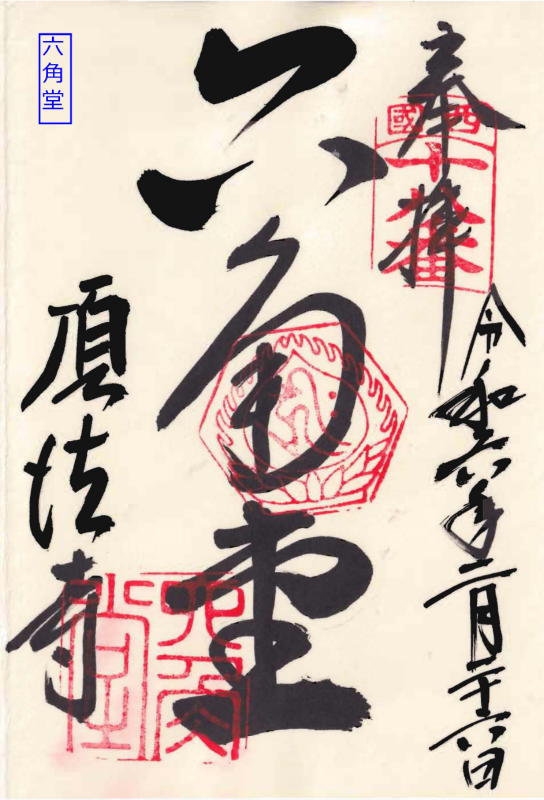 奉拝
西國
十八番
令和六年二月二十六日
六角堂
頂法寺
六角堂
六角堂